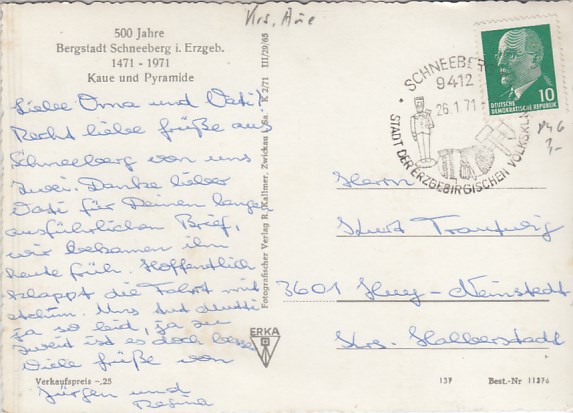 Krs. Aue
500 Jahre
Bergstadt Schneeberg i. Erzgeb.
1471 - 1971
Kaue und Pyramide
Liebe Oma und Vati!
Recht liebe Grüße aus
Schneeberg von uns
zwei. Danke lieber
Vati für Deinen langen
ausführlichen Brief,
wir bekamen ihn
heute früh. Hoffentlich
klappt die Fahrt mit
Uns tut Mutti
ja so leid, ja zu
zweit ist es doch
Viele Grüße von
Jürgen und
Regina
Verkaufspreis -,25
Fotografischer Verlag R. Kallmer, Zwickau Sa. K 2/71 III/29/65
ERKA
SCHNEEBERG
9412
26.1.71
STADT DER ERZGEBIRGISCHEN VOLKSK
DEUTSCHE
DEMOKRATISCHE REPUBLIK
10
Herrn
Kurt
3601 Huy-Neinstedt
Krs. Halberstadt
137
Best.-Nr 11376